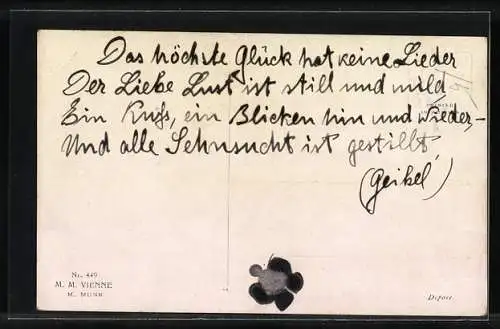 Das höchste Glück hat keine Lieder
Der Liebe Lust ist still und mild
Ein Kuss, ein Blicken hin und wieder, –
Und alle Sehnsucht ist gestillt,
(Geibel)
Nr. 449
M. M. VIENNE
M. MUNK
Déposé